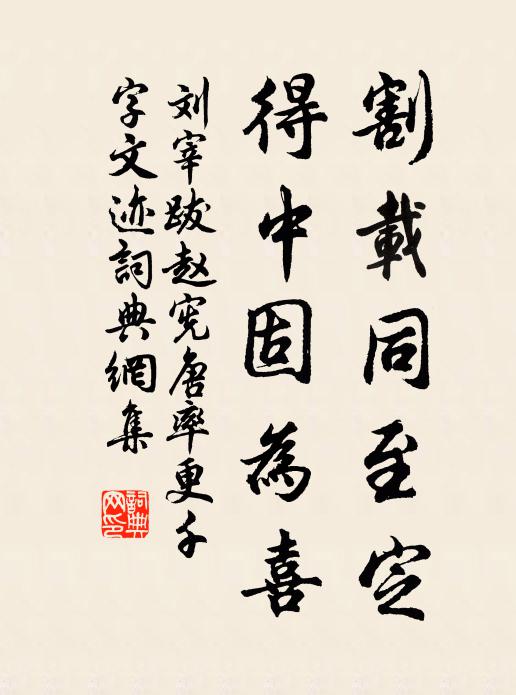 割載同至定
得中固為喜
刘宰跋赵宪唐率更千
字文迹詞典網集
詞典
网印